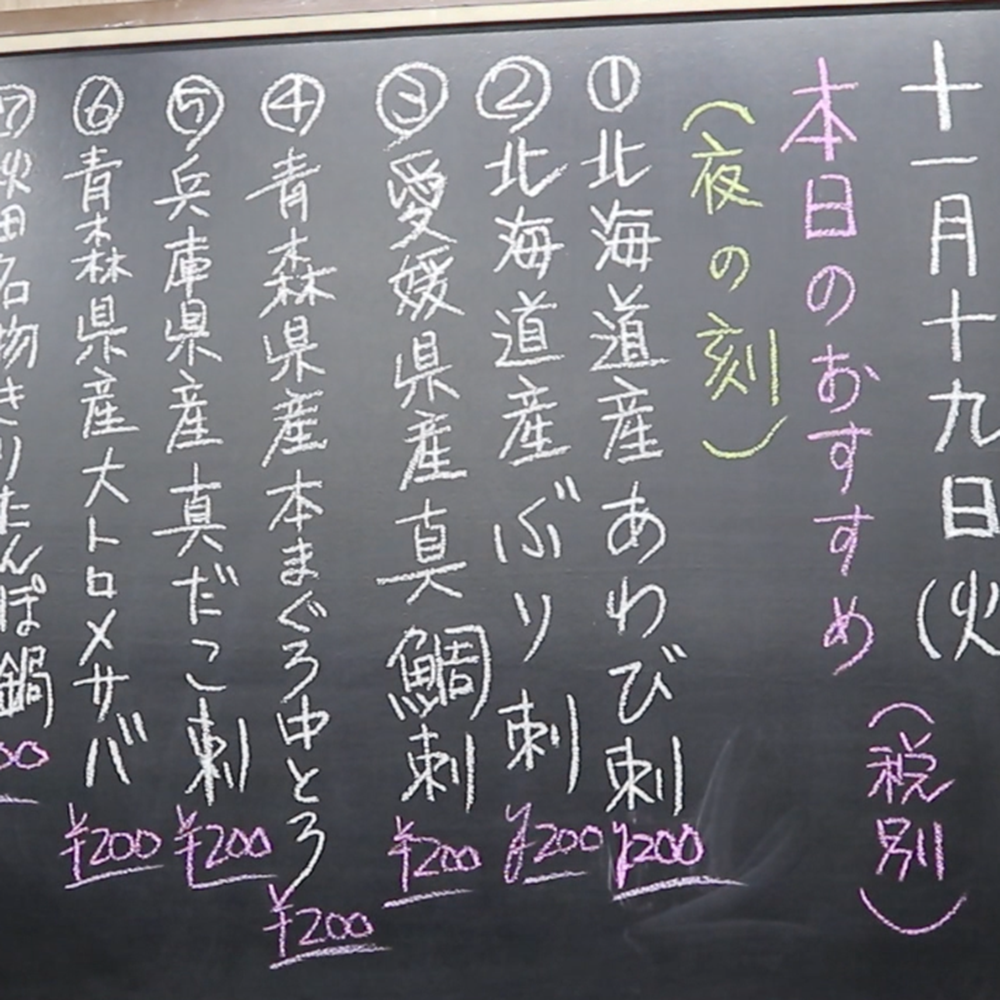 十一月十九日(火
本日のおすすめ(税別)
(夜の刻)
①北海道産あわび刺¥200
②北海道産ぶり刺¥200
③愛媛県産真鯛刺¥200
④青森県産本まぐろ中とろ¥200
⑤兵庫県産真だこ刺¥200
⑥青森県産大トロメサバ¥200
⑦秋田名物きりたんぽ鍋 00